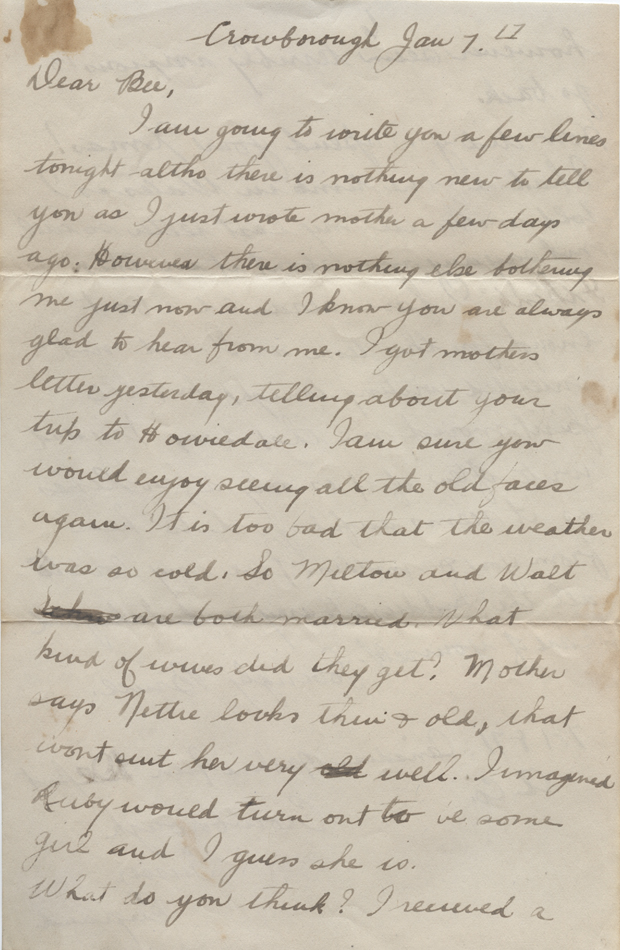 Crowborough Jan 7. 17
Dear Bee,
I am going to write you a few lines
tonight altho there is nothing new to tell
you as I just wrote mother a few days
ago. However there is nothing else bothering
me just now and I know you are always
glad to hear from me. I got mothers
letter yesterday, telling about your
trip to Howiedale. I am sure you
would enjoy seeing all the old faces
again. It is too bad that the weather
was so cold. So Milton and Walt
are both married. What
kind of wives did they get? Mother
says Nettie looks thin & old, that
wont suit her very old well. I imagened
Ruby would turn out to be some
girl and I guess she is.
What do you think? I received a